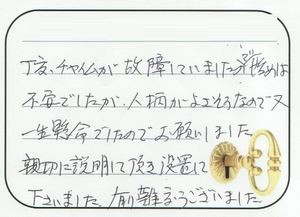 丁度、チャイムが故障していました。初めは
不安でしたが、人柄がよさそうなので又
一生懸命でしたのでお願いしました
親切に説明して頂き設置して
下さいました。有難うございました